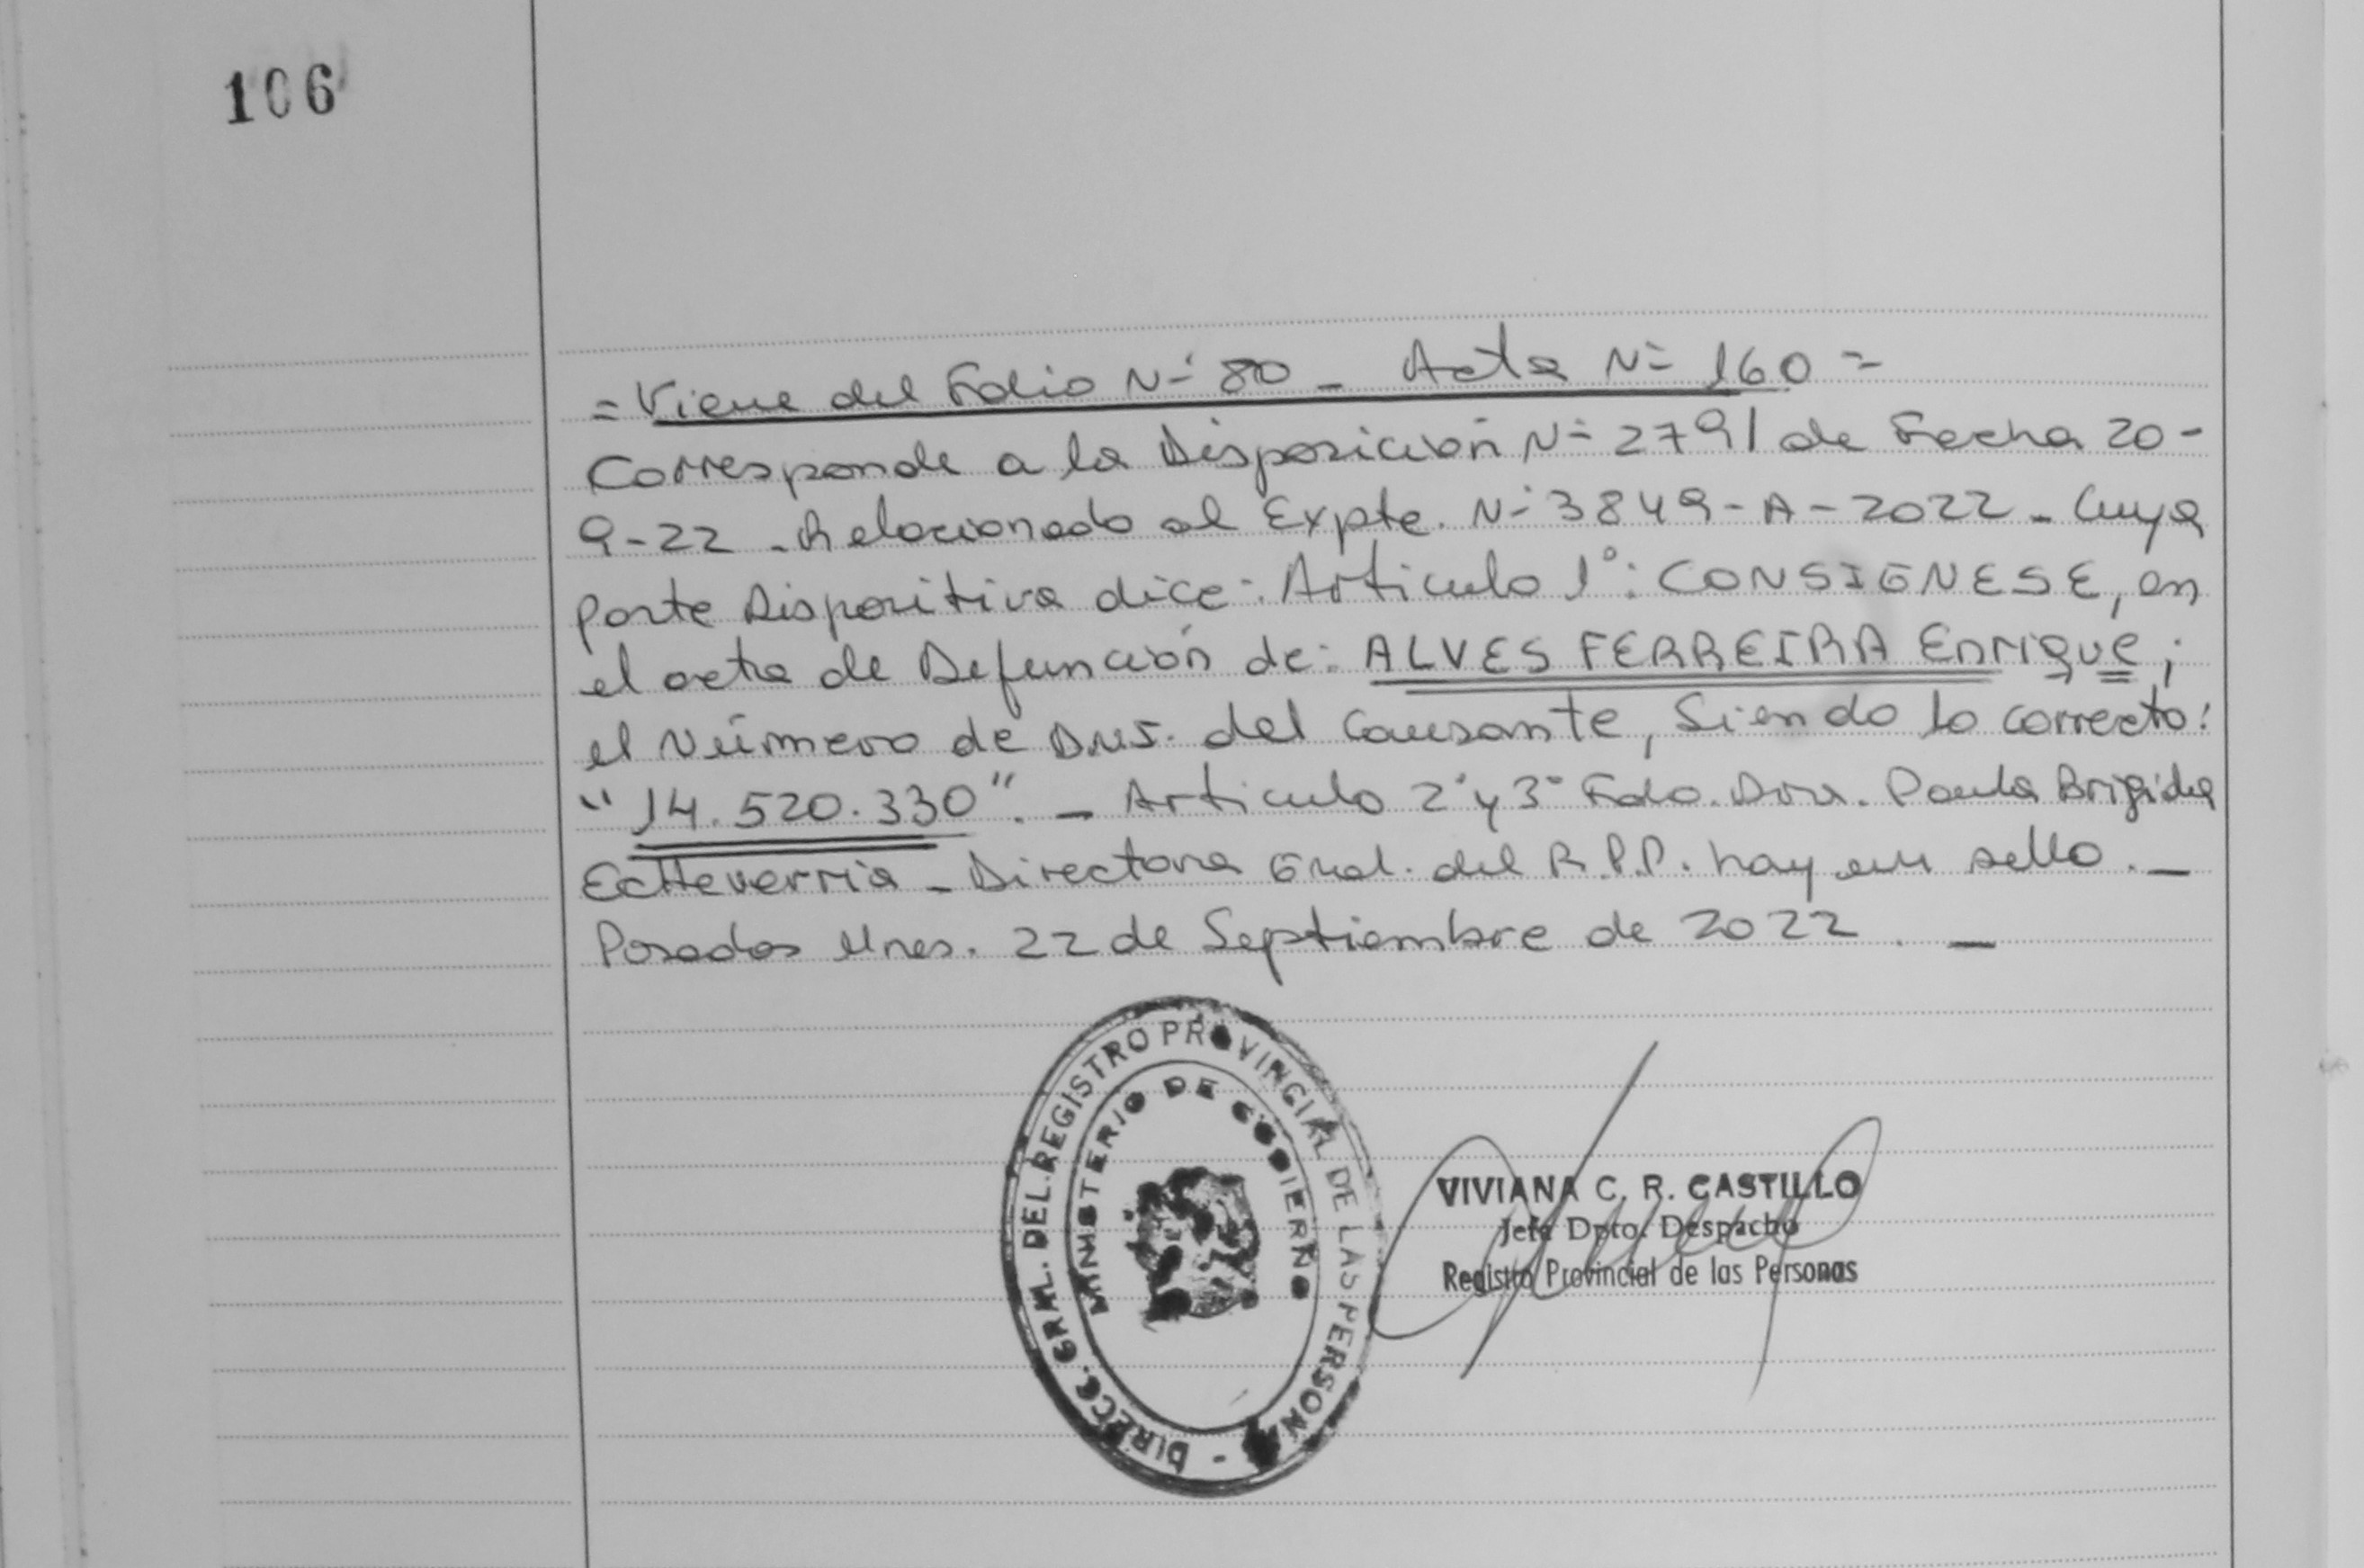 106
= Viene del Folio Nº 80 - Acta Nº 160 =
Corresponde a la Disposición Nº 2791 de Fecha 20-
9-22 - Relacionado al Expte. Nº 3849-A-2022 - Cuya
parte Dispositiva dice: Artículo 1°: CONSIGNESE, en
el acta de Defunción de: ALVES FERREIRA Enrique;
el Número de DNI. del Causante, Siendo lo correcto:
"14.520.330". - Artículo 2° y 3° Fdo. Dra. Paula Brigida
Echeverria - Directora Gral. del R.P.P. hay un sello. -
Posadas Mnes. 22 de Septiembre de 2022. -
DIRECC. GRAL. DEL REGISTRO PROVINCIAL DE LAS PERSONAS -
MINISTERIO DE GOBIERNO
VIVIANA C. R. CASTILLO
Jefa Dpto. Despacho
Registro Provincial de las Personas